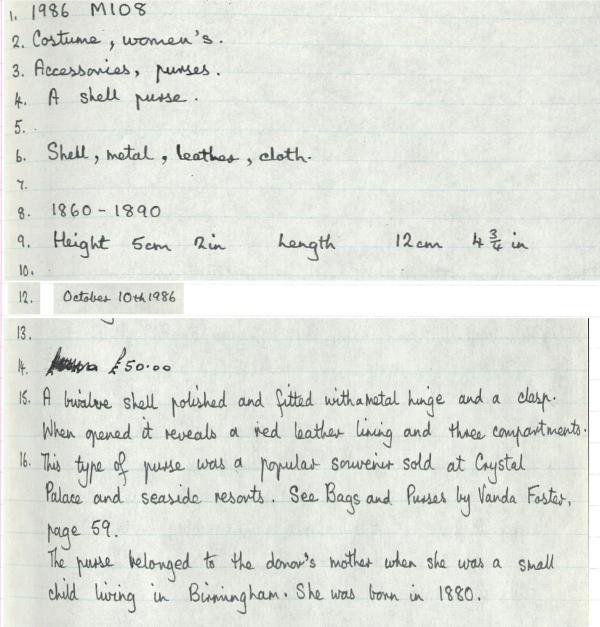 1. 1986 M108
2. Costume, women's.
3. Accessories, purses.
4. A shell purse.
5.
6. Shell, metal, leather, cloth.
7.
8. 1860 - 1890
9. Height 5cm 2in Length 12cm 4 3/4 in
10.
12. October 10th 1986
13.
14. £50.00
15. A bivalve shell polished and fitted with a metal hinge and a clasp.
When opened it reveals a red leather lining and three compartments.
16. This type of purse was a popular souvenir sold at Crystal
Palace and seaside resorts. See Bags and Purses by Vanda Foster,
page 59.
The purse belonged to the donor's mother when she was a small
child living in Birmingham. She was born in 1880.